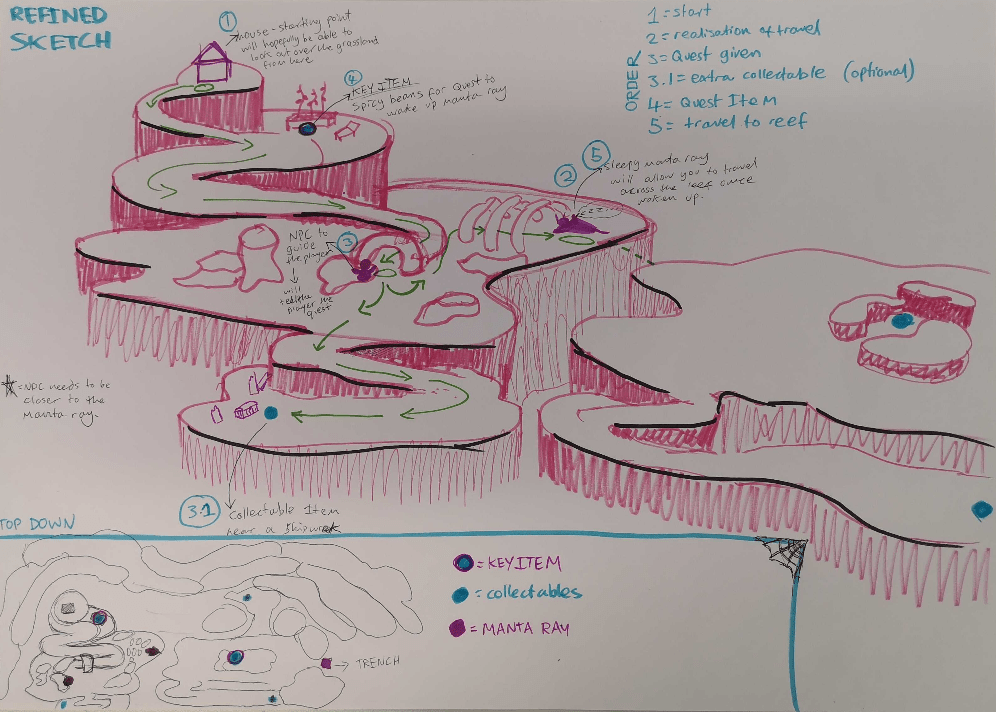 REFINED
SKETCH
1
house - starting point
will hopefully be able to
look out over the grassland
from here
4
KEY ITEM
Spicy beans for Quest to
wake up manta ray
ORDER
1 = start
2 = realisation of travel
3 = Quest given
3.1 = extra collectable (optional)
4 = Quest Item
5 = travel to reef
5
2
sleepy manta ray
will allow you to travel
across the reef once
woken up.
zzz
NPC to
guide
the player
3
will
tell the
player the
quest
* = NPC needs to be
closer to the
Manta ray.
3.1
Collectable Item
near a shipwreck
TOP DOWN
= KEY ITEM
= collectables
= MANTA RAY
TRENCH